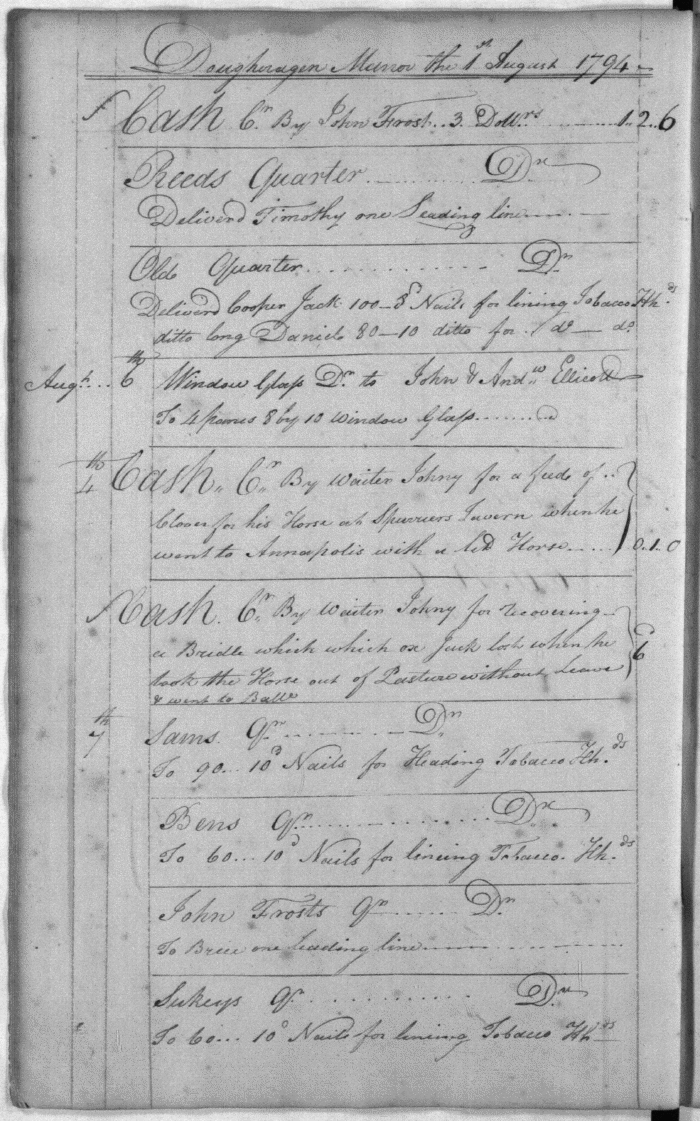 Dougheragen Manor the 1st August 1794
Cash Cr By John Frost.. 3 Dollrs ......... 1..2..6
Reeds Quarter ......... Dr
Deliverd Timothy one Leading line
Old Quarter ......... Dr
Deliverd Cooper Jack 100–8d Nails for lining Tobacco Hhds
ditto long Daniel 80–10 ditto for do — do
Augt.. 6th Window Glass Dr to John & Andw Ellicott
To 4 panes 8 by 10 window Glass
4th Cash Cr By Waiter Johny for a feed of
Clover for his Horse at Spurriers Tavern when he
went to Annapolis with a led Horse ..... 0.1.0
Cash Cr By Waiter Johny for recovering
a Bridle which which Jack lost when he 6
took the Horse out of Pasture without Leave
& went to Balt
7th Sams Qr ......... Dr
To 90... 10d Nails for Heading Tobacco Hhds
Bens Qr ......... Dr
To 60... 10d Nails for lineing Tobacco Hhds
John Frosts Qr ...... Dr
To one leading line
Sukeys Qr ......... Dr
To 60... 10d Nails for lineing Tobacco Hhds